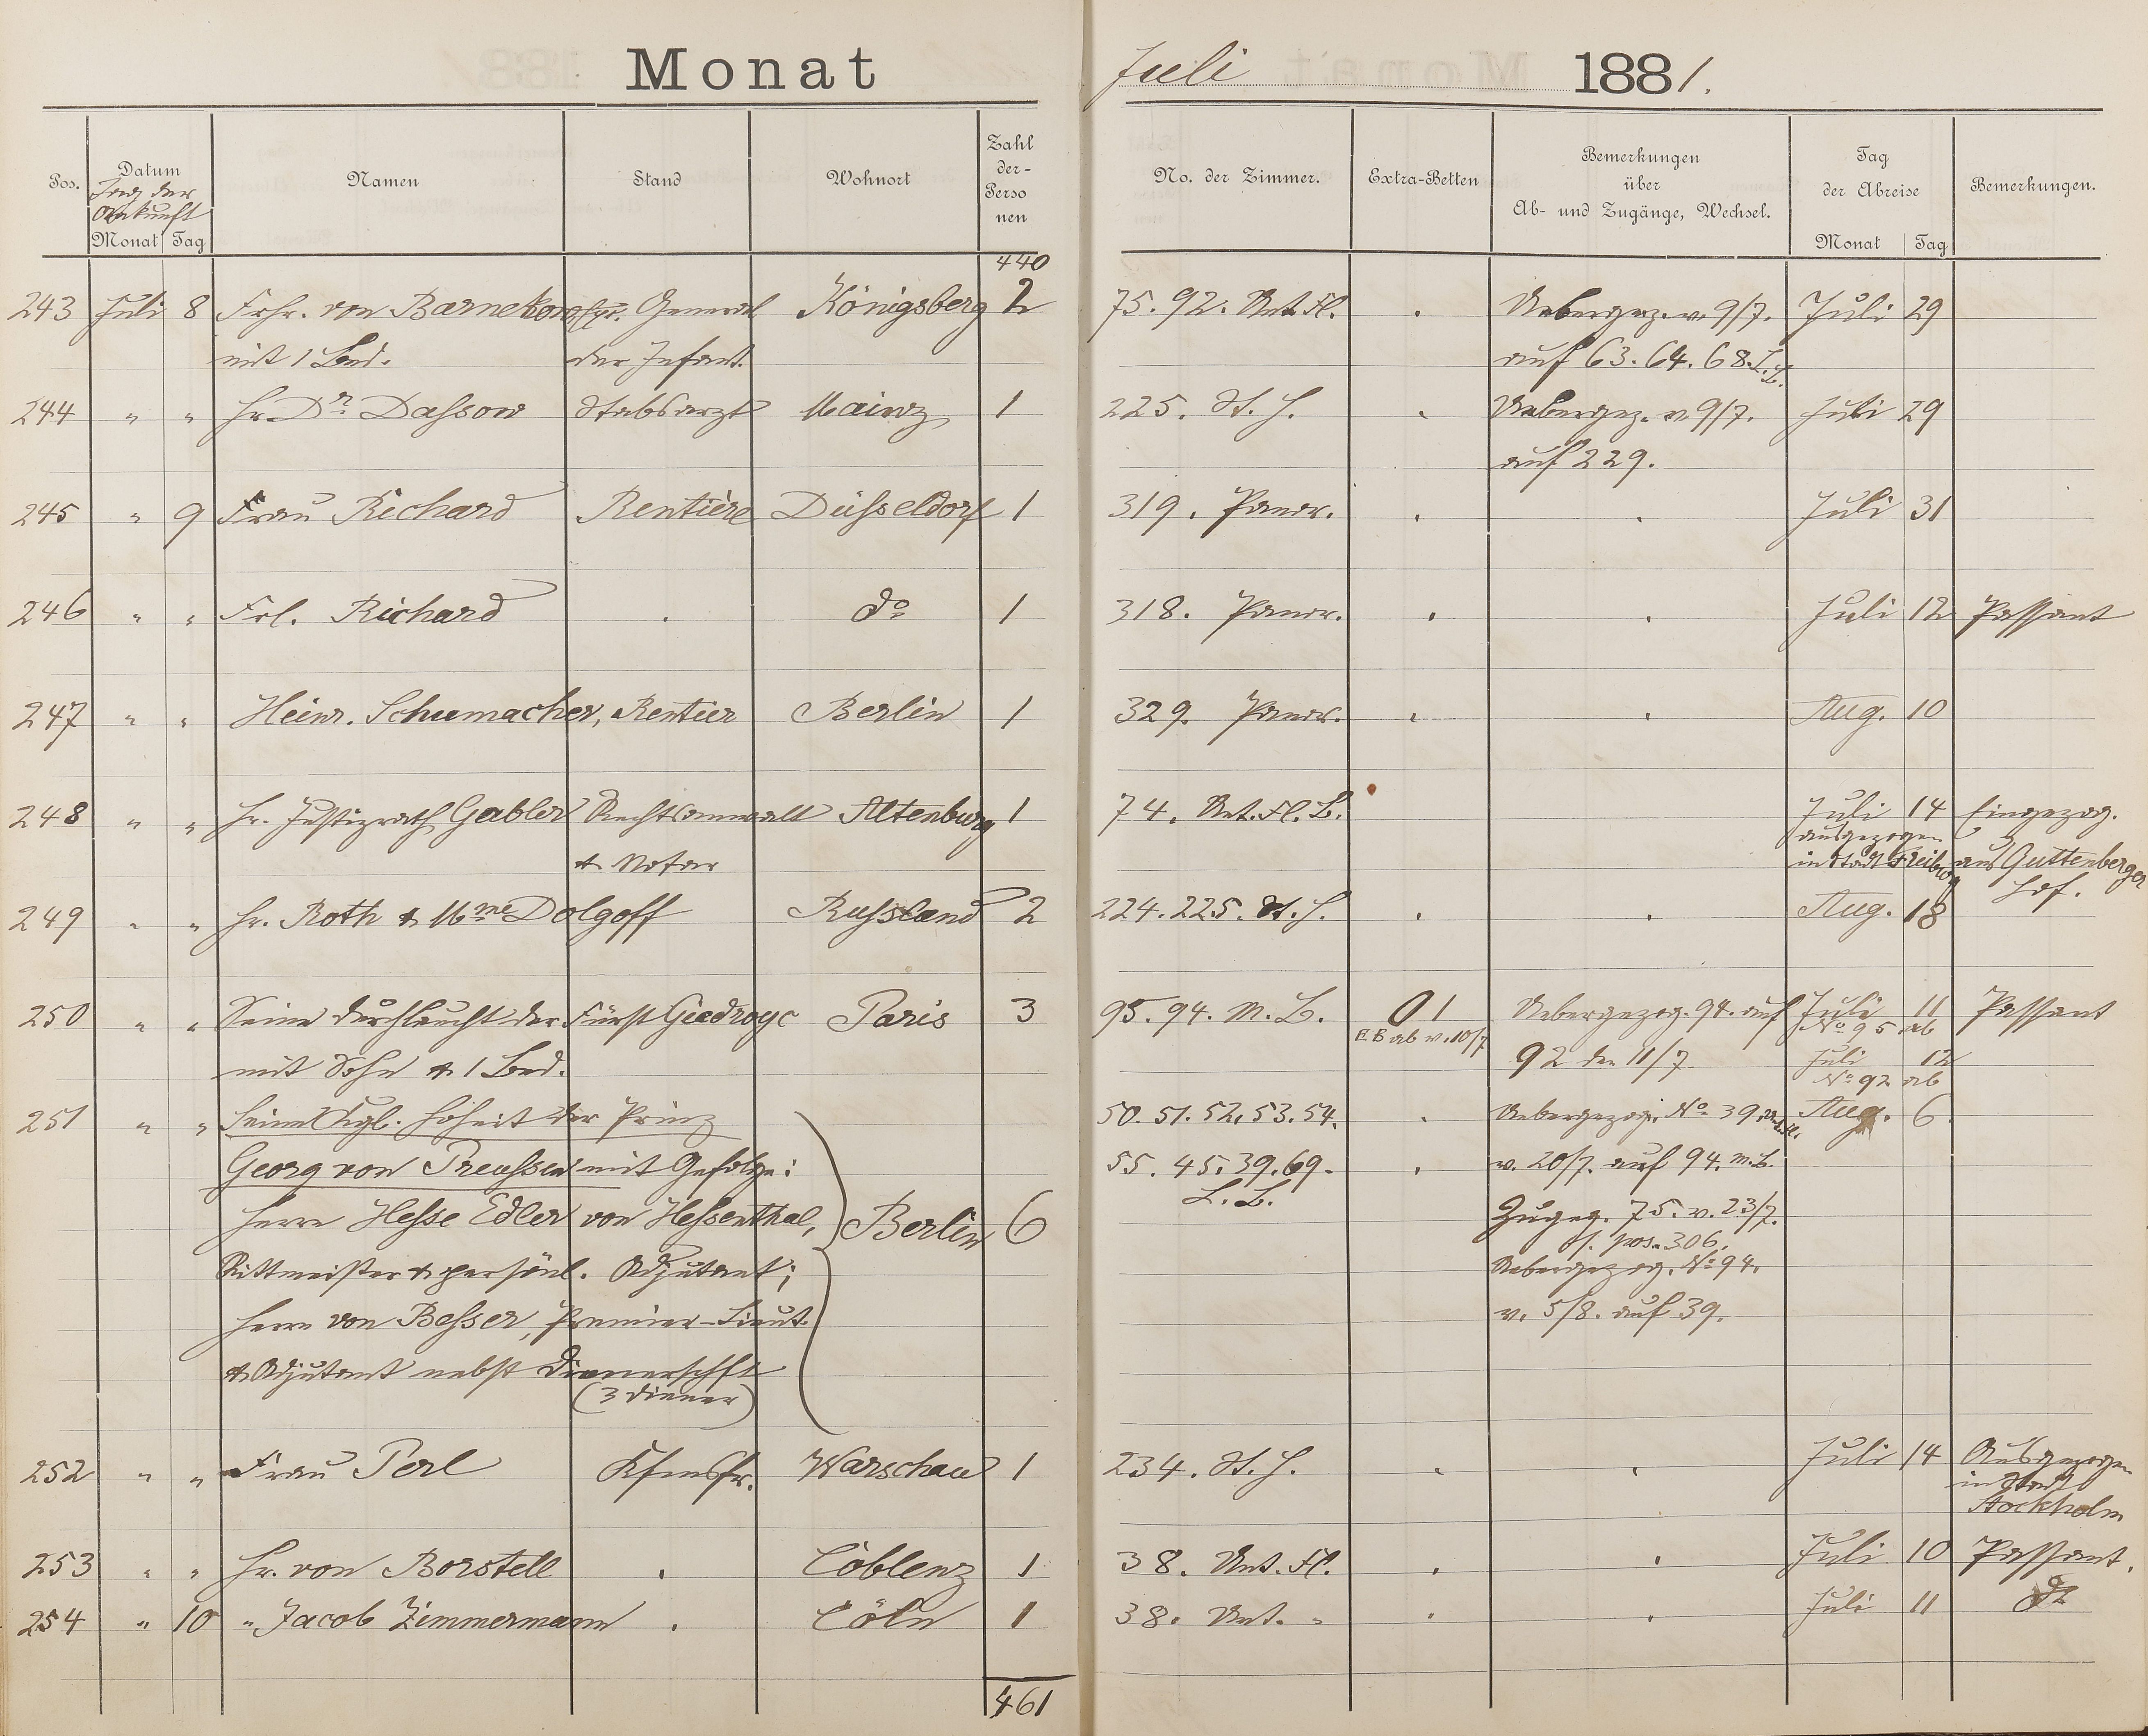 Monat Juli 1881.
Pos. Datum Namen Stand Wohnort Zahl der- Perso nen No. der Zimmer. Extra-Betten Bemerkungen über Ab- und Zugänge, Wechsel. Tag der Abreise Bemerkungen.
Tag der Ankunft
Monat Tag Monat Tag
440
243 Juli 8 Frhr. von Barnekow General Königsberg 2 75. 92. Unt. Fl. . Uebergez. v. 9/7. Juli 29
mit 1 Bed. der Infant. auf 63. 64. 68. L. B.
244 " " Hr. Dr. Dassow Stabsarzt Mainz 1 225. St. H. . Uebergez. v. 9/7. Juli 29
auf 229.
245 " 9 Frau Richard Rentière Düsseldorf 1 319. Pando. . . Juli 31
246 " " Frl. Richard . do 1 318. Pando. . . Juli 12 Passant
247 " " Heinr. Schumacher, Rentier Berlin 1 329. Pando. . . Aug. 10
248 " " Hr. Justizrath Gabler Rechtsanwalt Altenburg 1 74. Unt. Fl. B. Juli 14 Eingezog.
& Notar ausgezogen in Stadt Freiburg aus Guttenberger Hof.
249 " " Hr. Roth & Mme Dolgoff Russland 2 224. 225. St. H. . . Aug. 18
250 " " Seine Durchlaucht der Fürst Giedroyc Paris 3 95. 94. M. B. 1 Uebergezog. 94. auf Juli 11 Passant
E.B ab v. 10/7 No 95 ab
mit Sohn & 1 Bed. 92 den 11/7 Juli 12
No 92 ab
251 " " Seine Kgl. Hoheit der Prinz 50. 51. 52. 53. 54. . Uebergezog. No 39. Unt. Fl. Aug. 6.
Georg von Preussen mit Gefolge: 55. 45. 39. 69. . v. 20/7. auf 94. M. B.
L. B.
Herrn Hesse Edler von Hessenthal, Berlin 6 Zugez. 75. v. 23/7.
s. pos. 306.
Rittmeister & persönl. Adjutant; Uebergezog. No 94.
Herrn von Besser, Premier-Lieut. v. 5/8. auf 39.
& Adjutant nebst Dienerschft
(3 Diener)
252 " " Frau Perl Kfmsfr. Warschau 1 234. St. H. . . Juli 14 Ausgezogen
in Stadt
Stockholm
253 " " Hr. von Borstell . Coblenz 1 38. Unt. Fl. . . Juli 10 Passant.
254 " 10 " Jacob Zimmermann . Cöln 1 38. Unt. " . . Juli 11 do
461